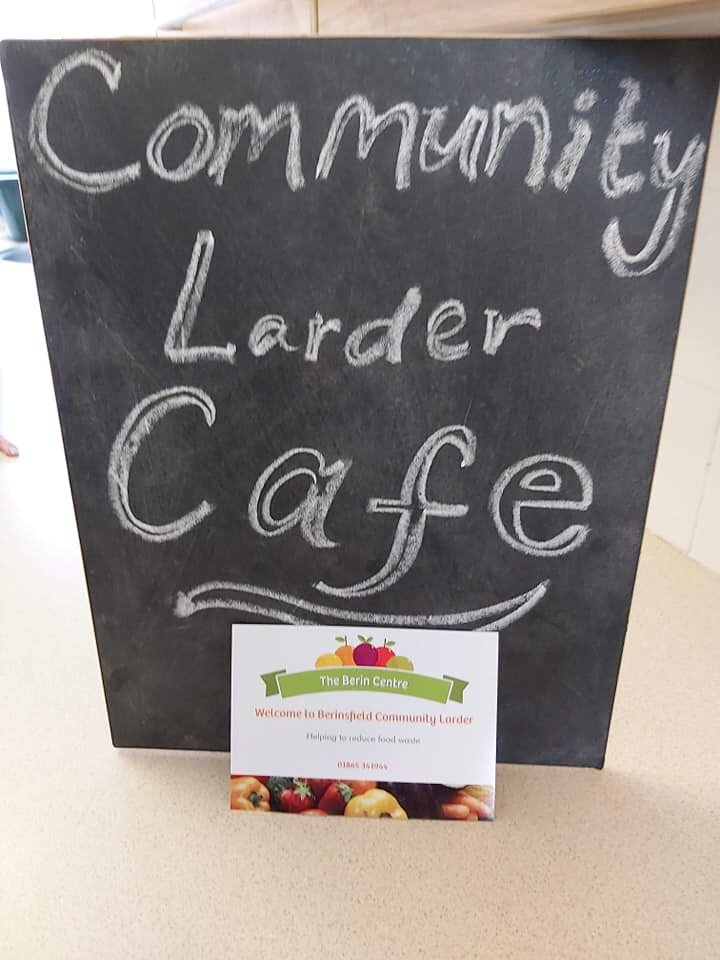 Community
Larder
Cafe
The Berin Centre
Welcome to Berinsfield Community Larder
Helping to reduce food waste
01865 341944